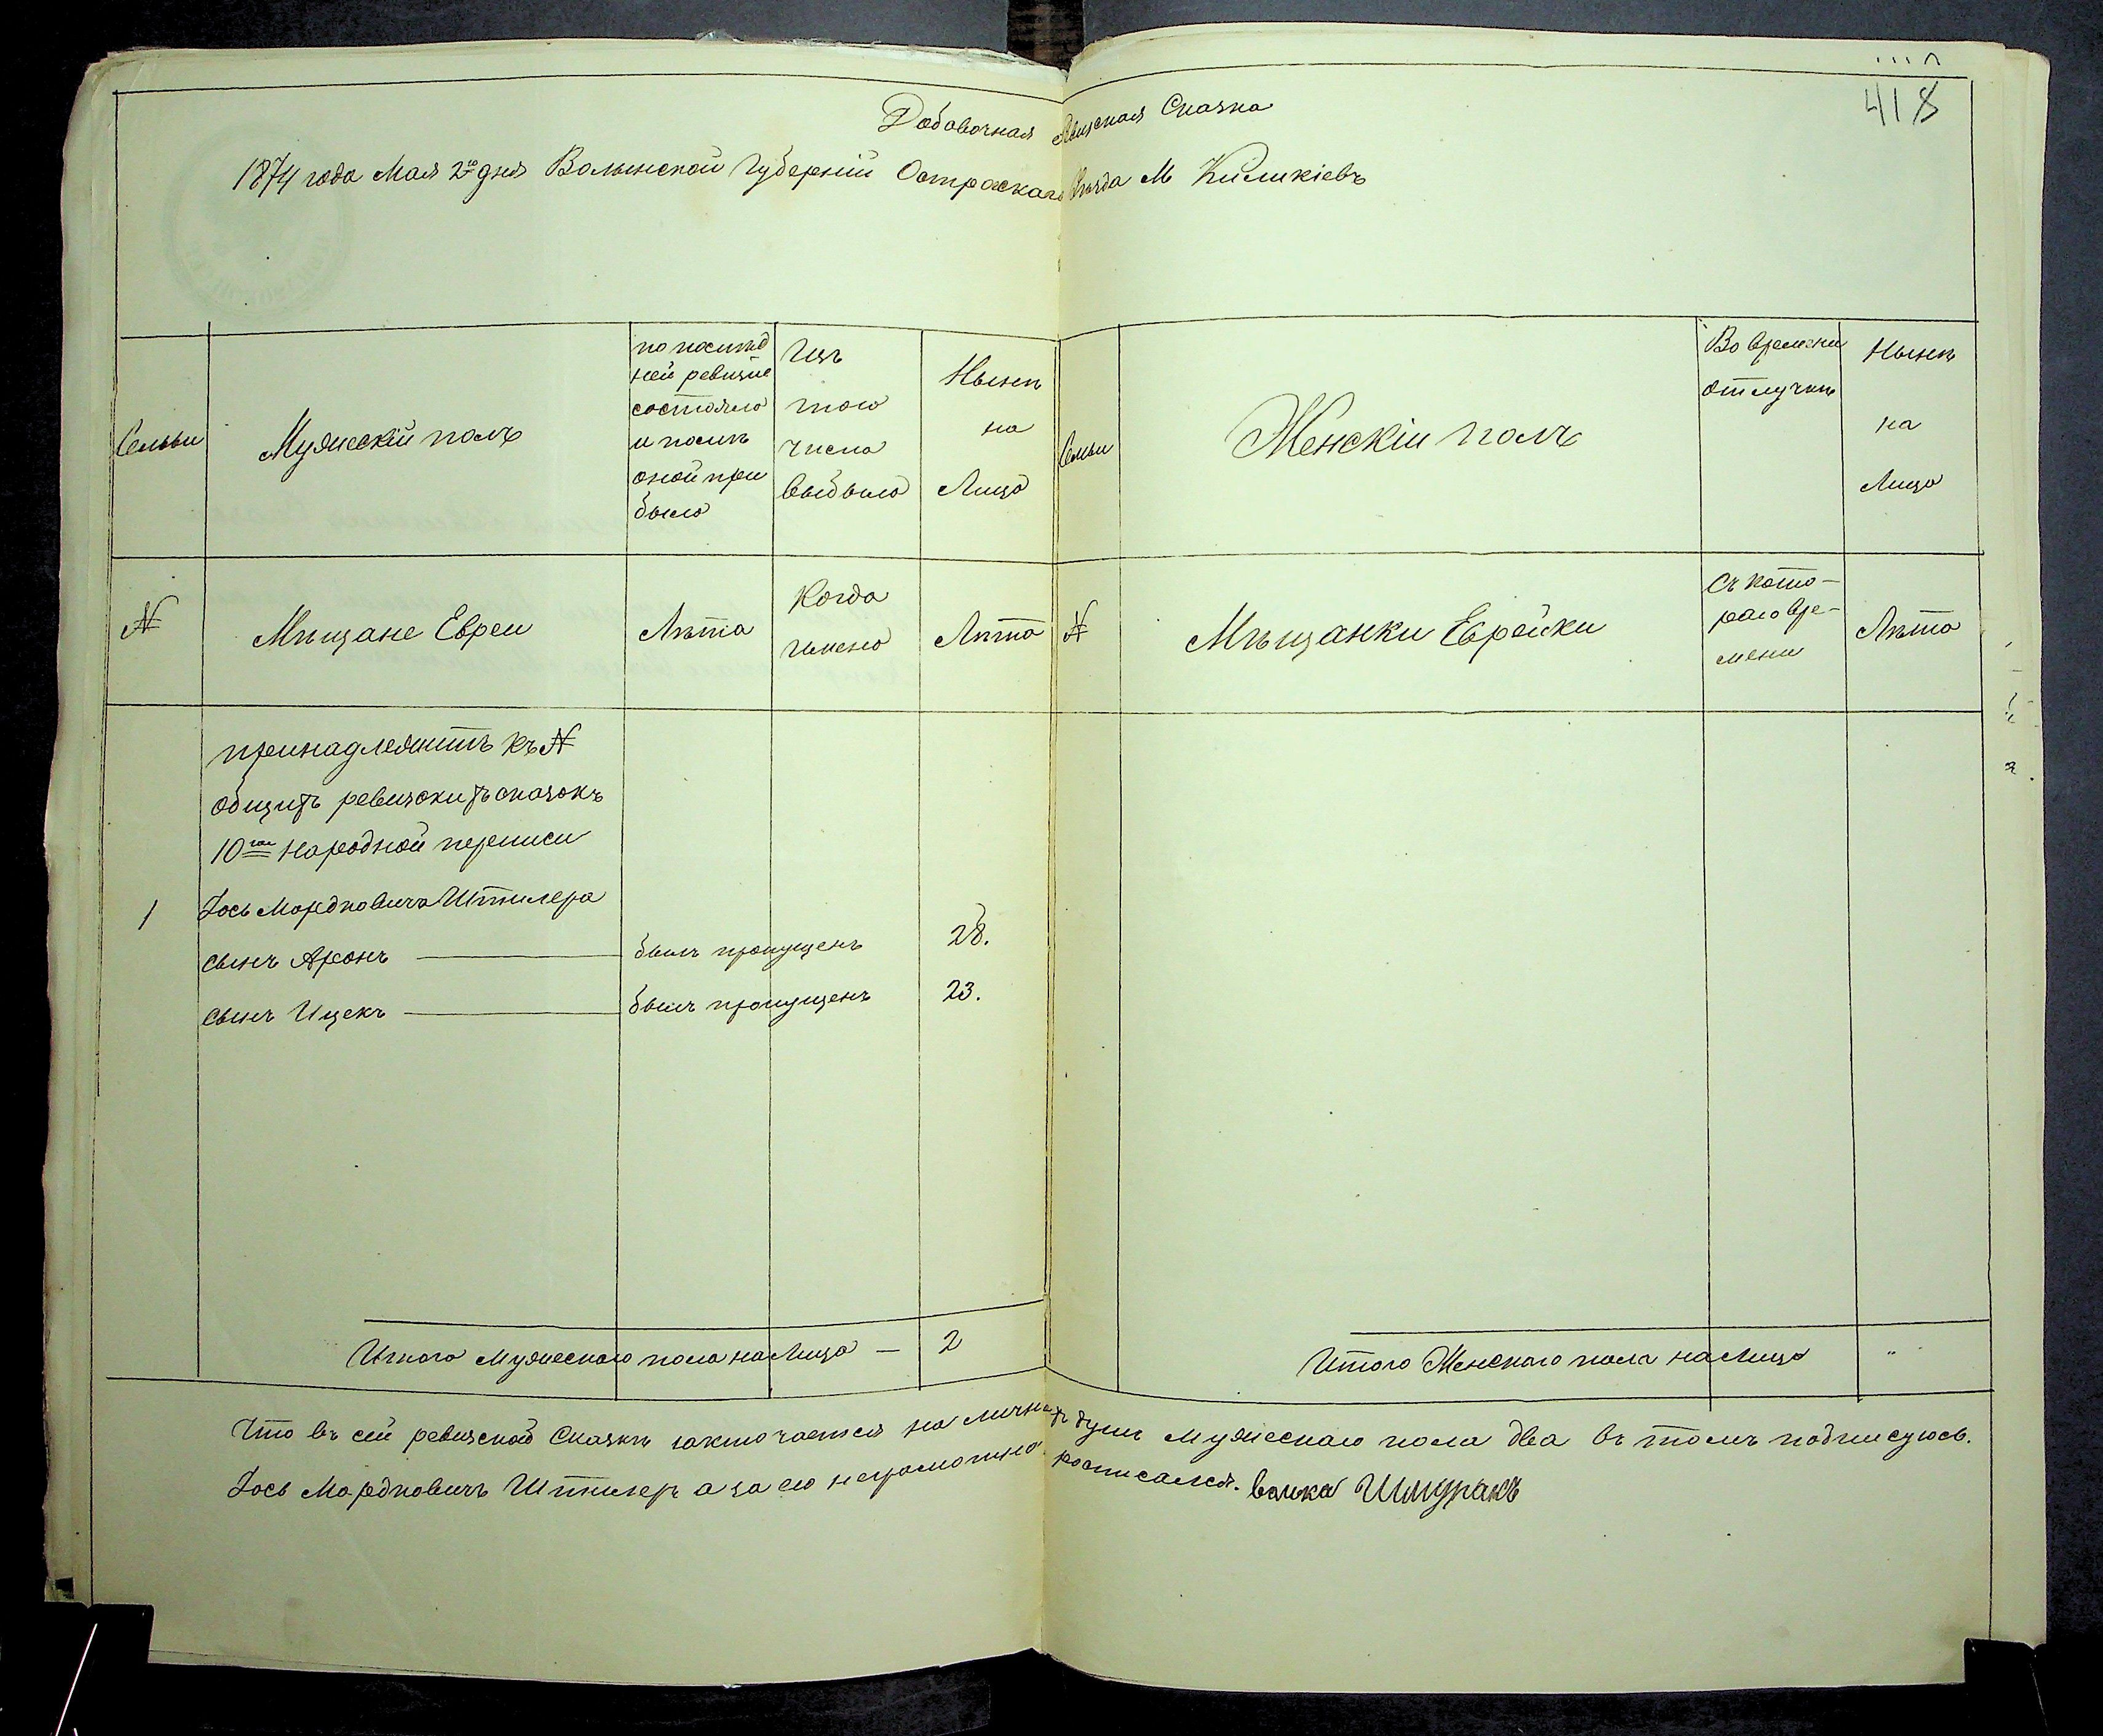 418
Добавочная Ревизская Сказка
1874 года Мая 2го дня Волынской Губерніи Острожскаго Уѣзда М Киликіевъ
Семьи
Мужескій полъ
по послѣд
ней ревизіи
состояло
и послѣ
оной при
было
Изъ
того
числа
выбыло
Нынѣ
на
Лицо
Семьи
Женскій полъ
Во временн
отлучкѣ
Нынѣ
на
Лицо
№
Мѣщане Евреи
Лѣта
Когда
именно
Лѣта
№
Мѣщанки Еврейки
Съ кото-
раго вре-
мени
Лѣта
принадлежитъ къ №
общихъ ревизскихъ сказокъ
10ой народной переписи
1 Іось Мордковича Штилера
сынъ Аронъ — былъ пропущенъ 28.
сынъ Ицекъ — былъ пропущенъ 23.
Итого Мужескаго пола на Лицо — 2
Итого Женскаго пола на Лицо "
Что въ сей ревизской Сказкѣ заключается на личнахъ душъ мужескаго пола два въ томъ подписуюсь.
Іось Мордковичъ Штилеръ а за его неграмотно росписался. Волка Шмуракъ